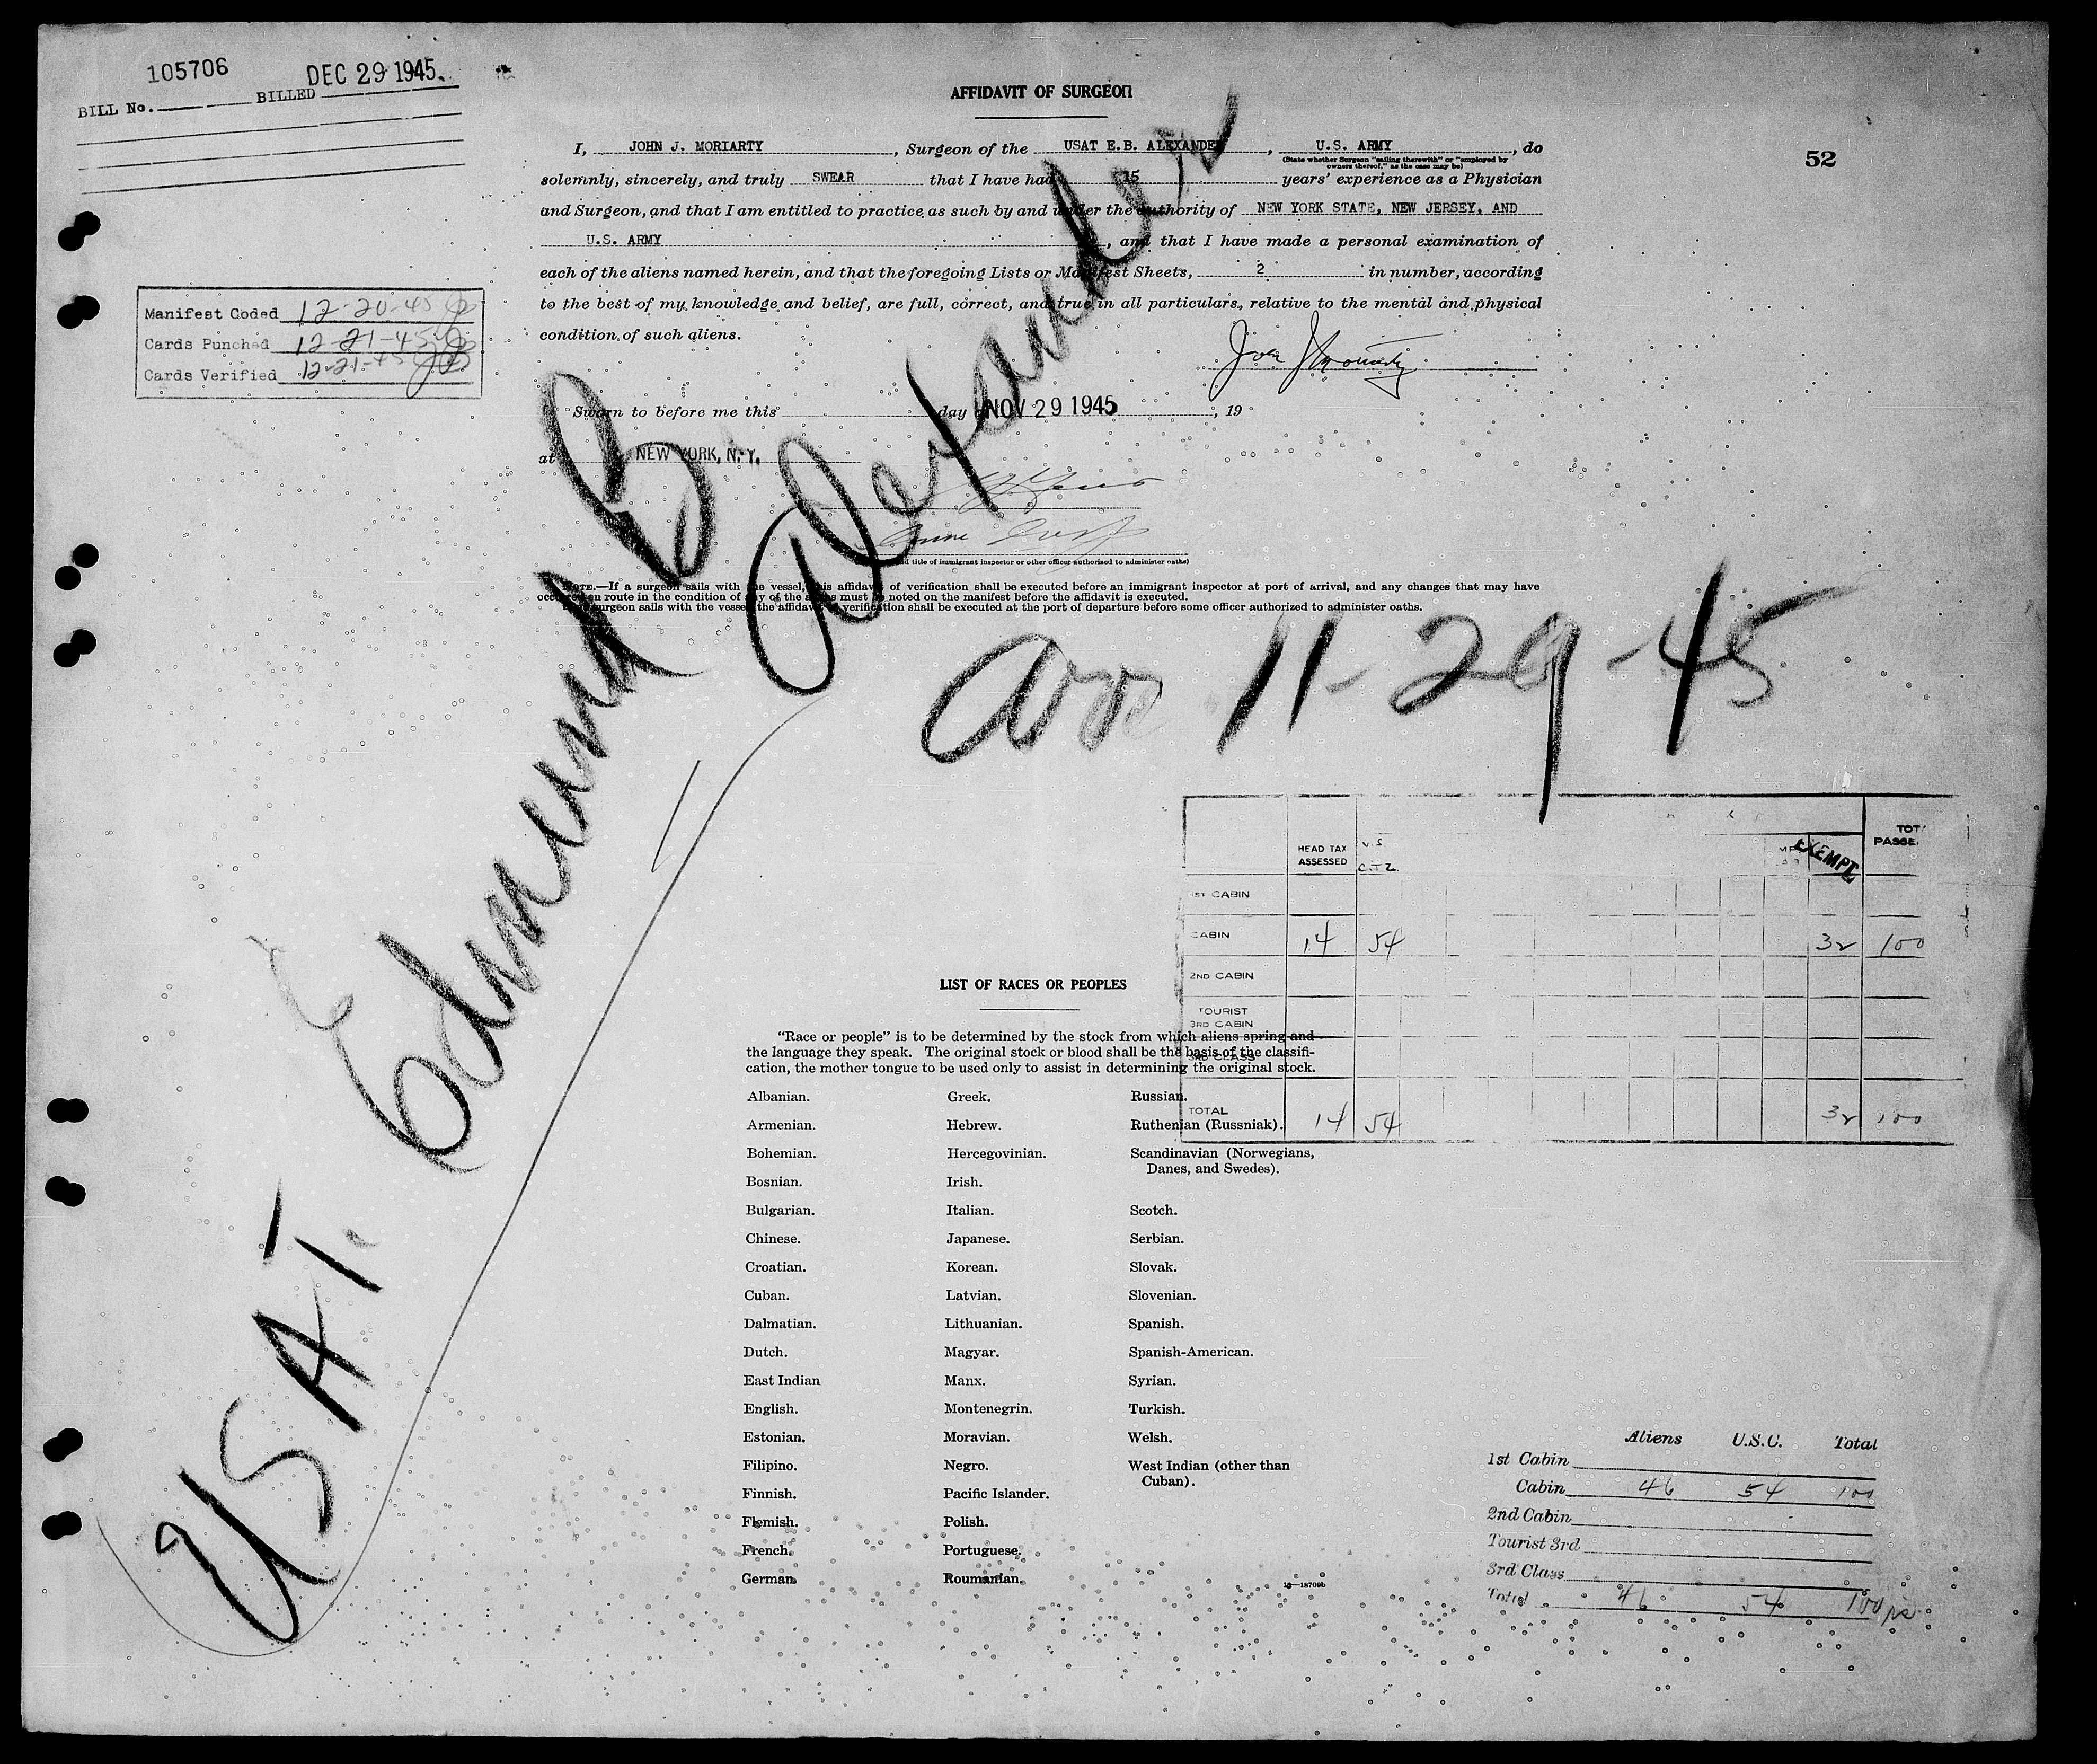 105706 DEC 29 1945
BILL No. BILLED
52
AFFIDAVIT OF SURGEON
I, JOHN J. MORIARTY, Surgeon of the USAT E.B. ALEXANDER, U.S. ARMY, do
(State whether Surgeon "sailing therewith" or "employed by
owners thereof," as the case may be)
solemnly, sincerely, and truly SWEAR that I have had 15 years' experience as a Physician
and Surgeon, and that I am entitled to practice as such by and under the authority of NEW YORK STATE, NEW JERSEY, AND
U.S. ARMY, and that I have made a personal examination of
each of the aliens named herein, and that the foregoing Lists or Manifest Sheets, 2 in number, according
to the best of my knowledge and belief, are full, correct, and true in all particulars, relative to the mental and physical
condition of such aliens.
Manifest Coded 12-20-45
Cards Punched 12-21-45
Cards Verified 12-21-45
Sworn to before me this day NOV 29 1945, 19
at NEW YORK, N.Y.
title of immigrant inspector or other officer authorized to administer oaths)
NOTE.—If a surgeon sails with the vessel, this affidavit of verification shall be executed before an immigrant inspector at port of arrival, and any changes that may have
occurred en route in the condition of any of the aliens must be noted on the manifest before the affidavit is executed.
surgeon sails with the vessel the affidavit verification shall be executed at the port of departure before some officer authorized to administer oaths.
USAT. Edmund B Alexander
arr 11-29-45
HEAD TAX ASSESSED U.S. CIZ. EXEMPT TOT PASSE
1ST CABIN
CABIN 14 54 32 100
2ND CABIN
TOURIST
3RD CABIN
3RD CLASS
TOTAL 14 54 32 100
LIST OF RACES OR PEOPLES
"Race or people" is to be determined by the stock from which aliens spring and
the language they speak. The original stock or blood shall be the basis of the classifi-
cation, the mother tongue to be used only to assist in determining the original stock.
Albanian. Greek. Russian.
Armenian. Hebrew. Ruthenian (Russniak).
Bohemian. Hercegovinian. Scandinavian (Norwegians,
Danes, and Swedes).
Bosnian. Irish.
Bulgarian. Italian. Scotch.
Chinese. Japanese. Serbian.
Croatian. Korean. Slovak.
Cuban. Latvian. Slovenian.
Dalmatian. Lithuanian. Spanish.
Dutch. Magyar. Spanish-American.
East Indian Manx. Syrian.
English. Montenegrin. Turkish.
Estonian. Moravian. Welsh.
Filipino. Negro. West Indian (other than
Cuban).
Finnish. Pacific Islander.
Flemish. Polish.
French. Portuguese.
German. Roumanian.
16—18709b
Aliens U.S.C. Total
1st Cabin
Cabin 46 54 100
2nd Cabin
Tourist 3rd
3rd Class
Total 46 54 100